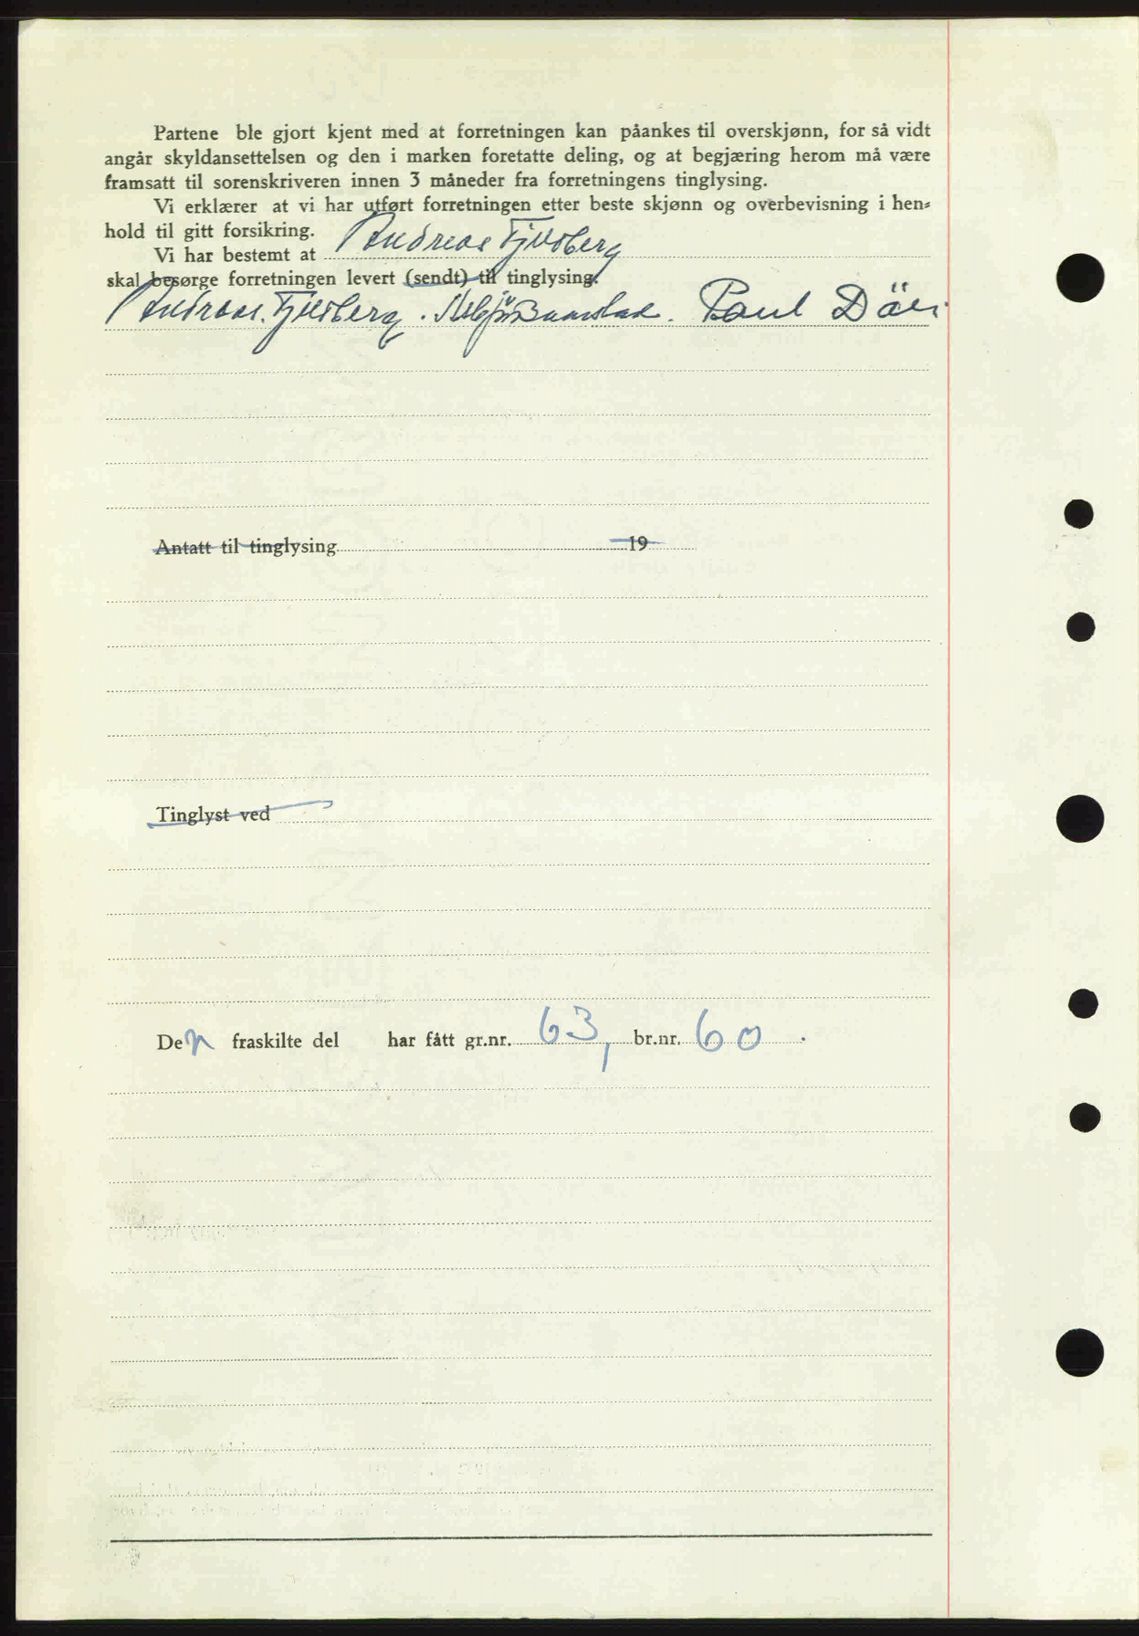 Partene ble gjort kjent med at forretningen kan påankes til overskjønn, for så vidt
angår skyldansettelsen og den i marken foretatte deling, og at begjæring herom må være
framsatt til sorenskriveren innen 3 måneder fra forretningens tinglysing.
Vi erklærer at vi har utført forretningen etter beste skjønn og overbevisning i hen-
hold til gitt forsikring.
Vi har bestemt at Andreas
skal besørge forretningen levert (sendt) til tinglysing.
Andreas. Paul
Antatt til tinglysing 19
Tinglyst ved
Den fraskilte del har fått gr.nr. 63, br.nr. 60.